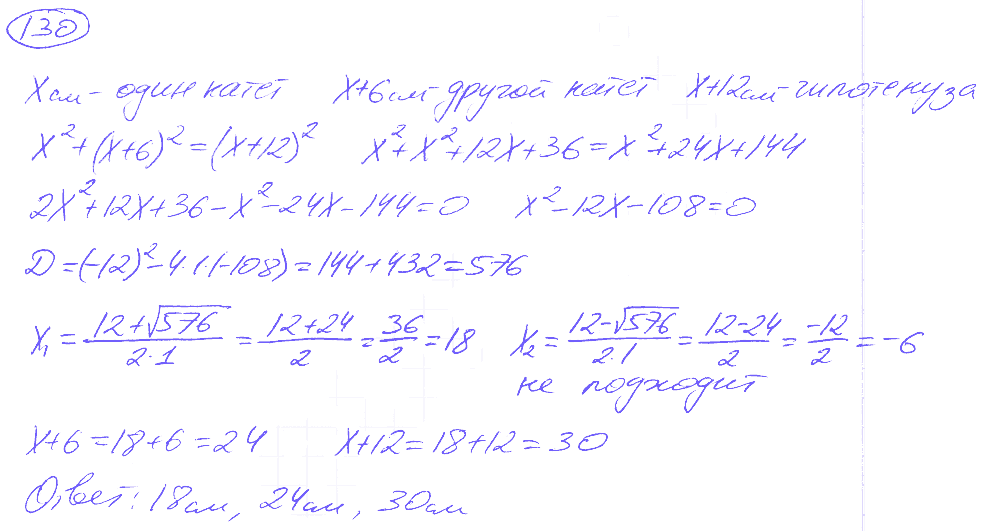 130
x см - один катет x+6 см - другой катет x+12 см - гипотенуза
x² + (x+6)² = (x+12)² x² + x² + 12x + 36 = x² + 24x + 144
2x² + 12x + 36 - x² - 24x - 144 = 0 x² - 12x - 108 = 0
D = (-12)² - 4·1·(-108) = 144 + 432 = 576
x₁ = (12+√576)/(2·1) = (12+24)/2 = 36/2 = 18 x₂ = (12-√576)/(2·1) = (12-24)/2 = -12/2 = -6
не подходит
x+6 = 18+6 = 24 x+12 = 18+12 = 30
Ответ: 18 см, 24 см, 30 см